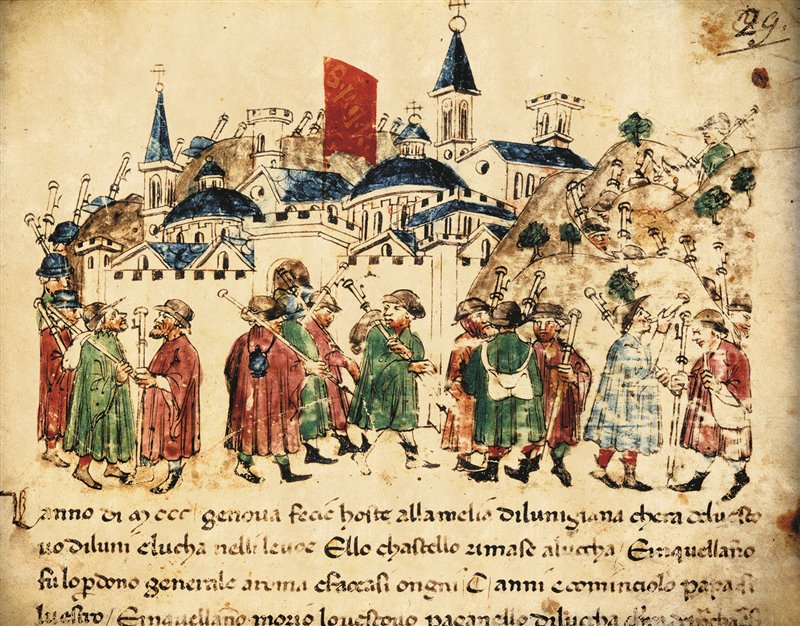 29.
Lanno di MCCC / genova fecie hoste allamelia dilunigiana chera deluesco
uo diluni elucha nelli leuoe Ello chastello rimase aluccha / Einquellano
fu lo pdono generale aroma efaccasi ongni C anni ecominciolo papa si
luestro / Einquellano morio louescouo paganello dilucha